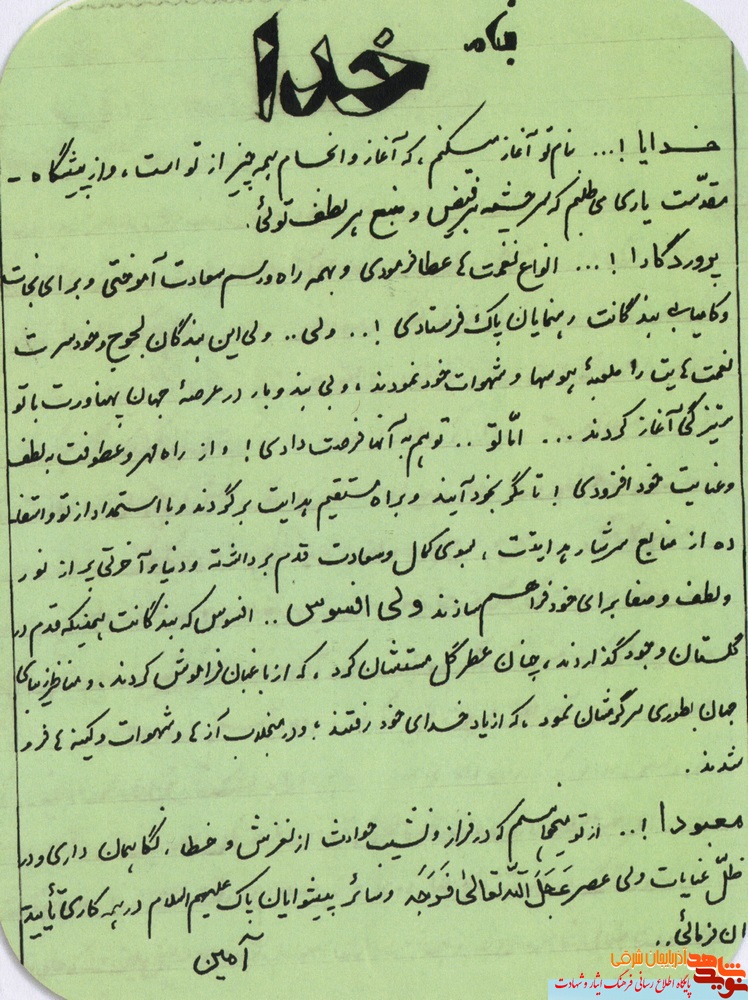 بنام
خدا
خدایا !... نام تو آغاز میکنم ، که آغاز و انجام همه چیز از تو است ، و از پیشگاه -
مقدّست یاری می‌طلبم که سرچشمه هر فیض و منبع هر لطف توئی .
پروردگارا !... انواع نعمت ها عطا فرمودی و بهمه راه و رسم سعادت آموختی و برای نجات
و کامیابی بندگانت رهنمایان پاک فرستادی !.. ولی.. ولی این بندگان لجوج و خودسرت
نعمت هایت را ملعبهٔ هوسها و شهوات خود نمودند ، و بی بند و بار در عرصهٔ جهان پهناورت با تو
ستیزگی آغاز کردند ... امّا تو .. تو هم به آنها فرصت دادی ! و از راه مهر و عطوفت به لطف
و عنایت خود افزودی ! تا مگر بخود آیند و براه مستقیم هدایت برگردند و با استمداد از تو و استفا
ده از منابع سرشار هدایتت ، بسوی کمال و سعادت قدم برداشته و دنیا و آخرتی پر از نور
و لطف و صفا برای خود فراهم سازند ولی افسوس .. افسوس که بندگانت همینکه قدم در
گلستان وجود گذاردند ، چنان عطر گل مستشان کرد ، که از باغبان فراموش کردند . و مناظر زیبای
جهان بطوری سرگرمشان نمود ، که از یاد خدای خود رفتند ؛ و در منجلاب آز ها و شهوات و کینه ها فرو
شدند .
معبودا !.. از تو میخواهم که در فراز و نشیب حوادث از لغزش و خطا ، نگاهمان داری و در
ظلّ عنایات ولی عصر عَجَّلَ اللّه تعالیٰ فَرَجَه و سائر پیشوایان پاک علیهم السلام در همه کاری تأیید
مان فرمائی ..
آمین
نوید شاهد آذربایجان شرقی
پایگاه اطلاع رسانی فرهنگ ایثار و شهادت